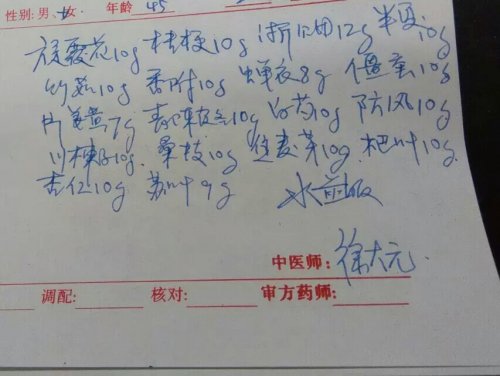 性别：男、女 年龄 45
旋覆花10g 桔梗10g 浙贝母12g 半夏10g
竹茹10g 香附10g 蝉衣8g 僵蚕10g
7g 10g 白芍10g 防风10g
川楝子10g、桑枝10g 生麦芽10g、杷叶10g
杏仁10g 苏叶9g 水煎服
中医师：徐大元
调配： 核对： 审方药师：